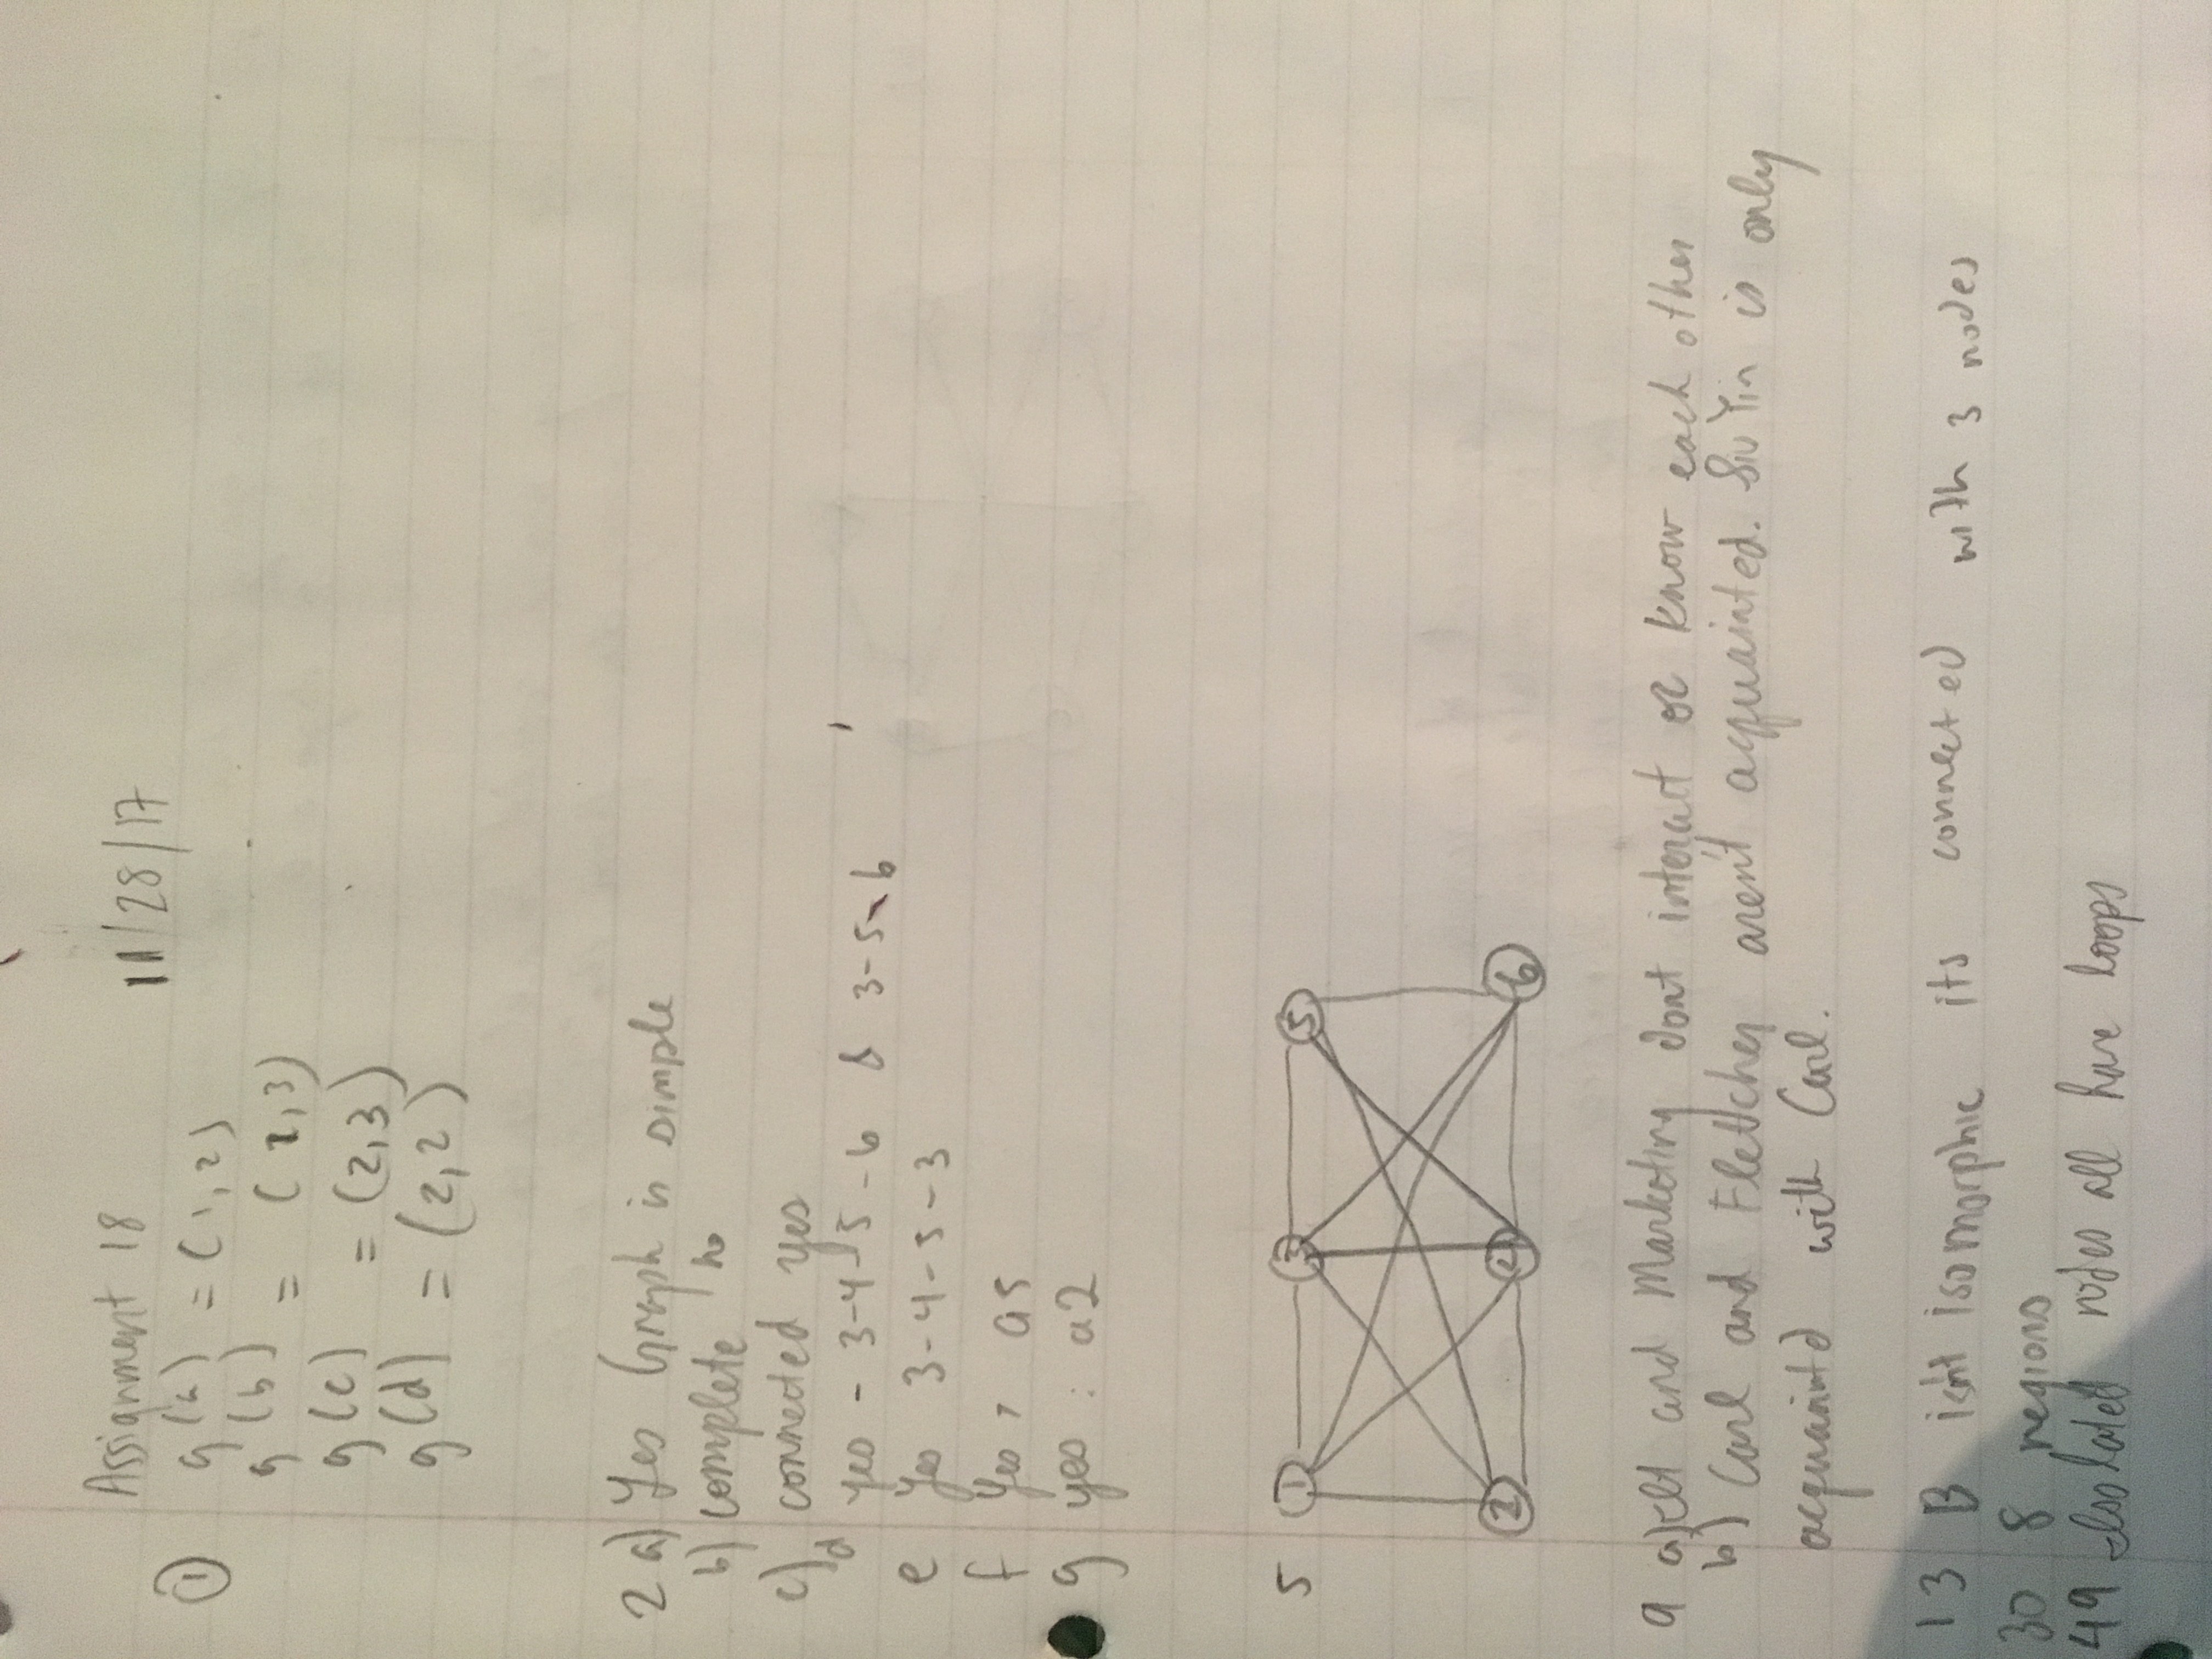 Assignment 18 11/28/17
① g(a) = (1,2)
g(b) = (1,3)
g(c) = (2,3)
g(d) = (2,2)
2 a) Yes Graph is simple
b) complete no
c) connected yes
d yes - 3-4-5-6 & 3-5-6
e Yes 3-4-5-3
f Yes, a5
g yes : a2
5 ① ③ ⑤
② ④ ⑥
9 a) and Marketing dont interact or know each other
b) Carl and Fletcher aren't acquainted. SiuYin is only
acquaintd with Carl.
13 B isn't isomorphic its connected with 3 nodes
30 8 regions
49 Isolated nodes all have loops